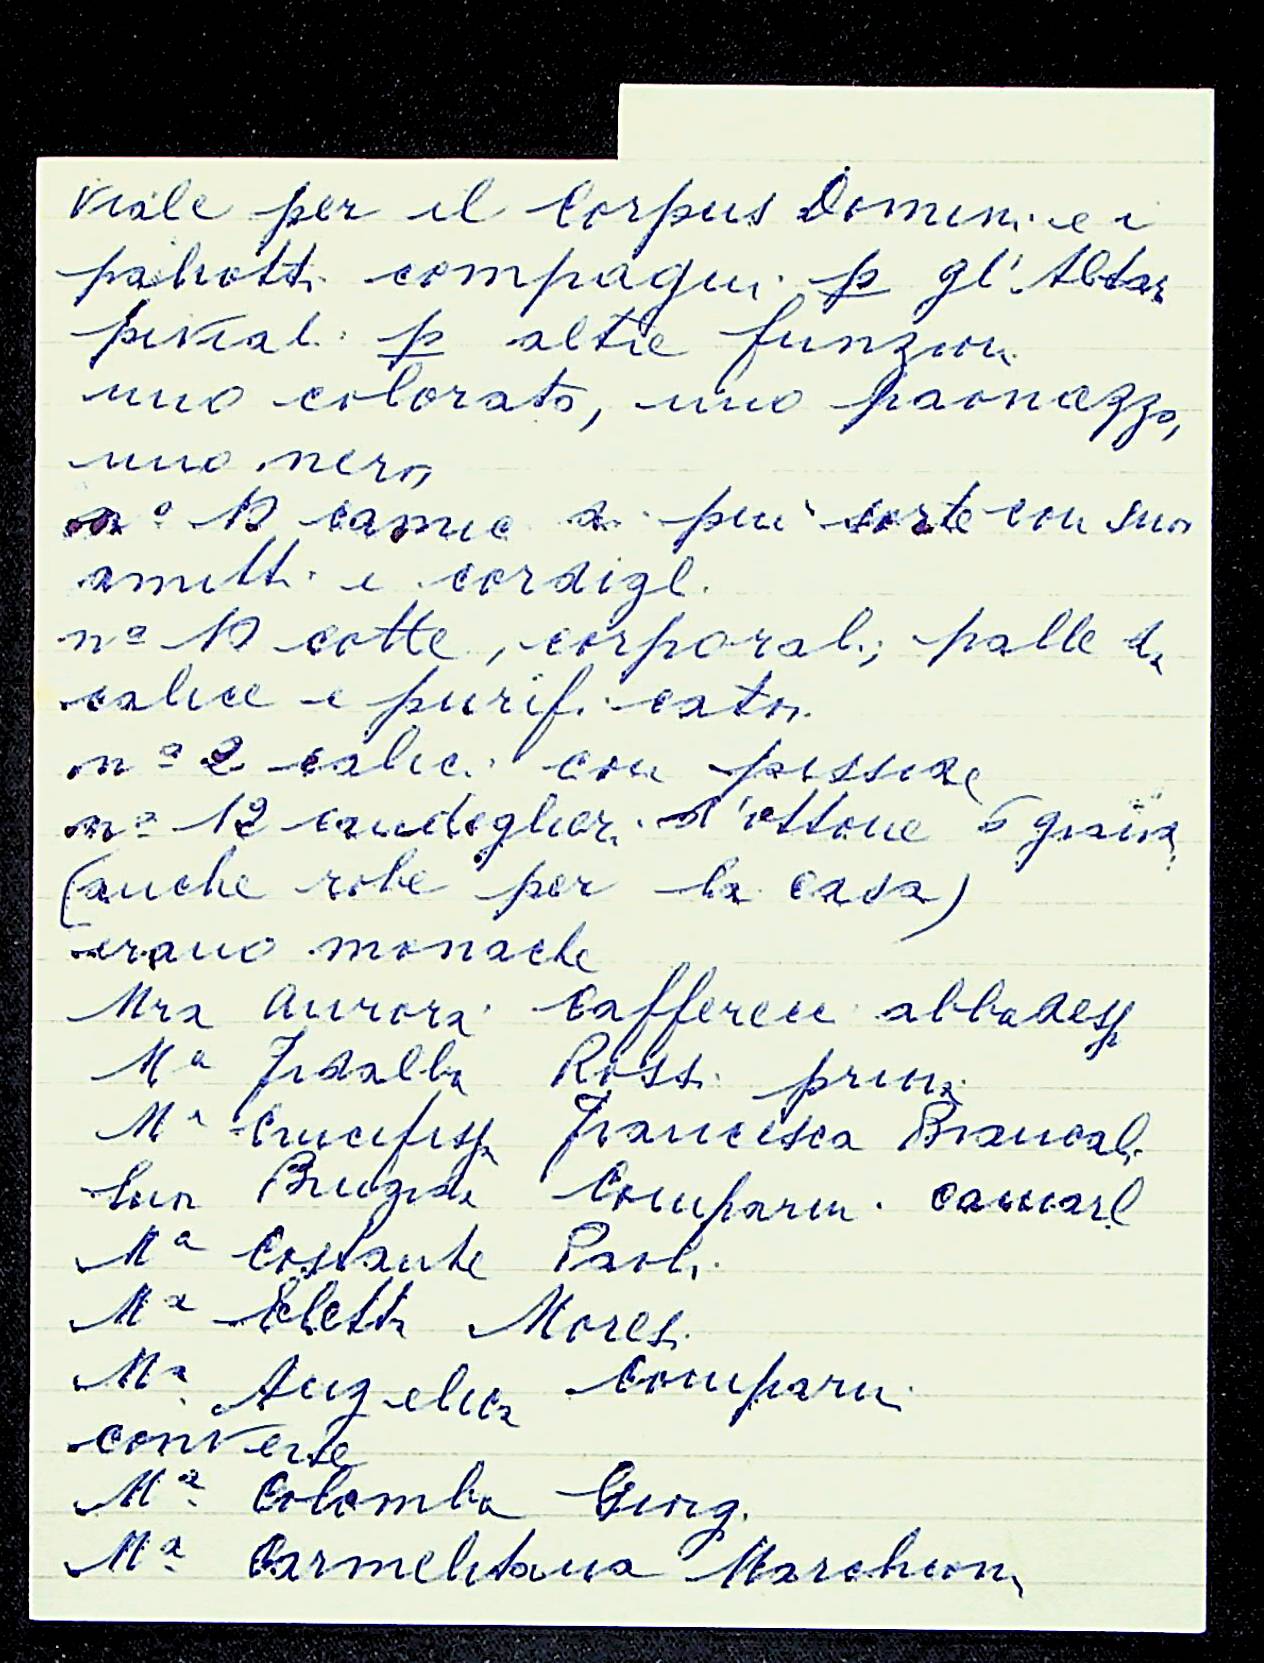 viale per il Corpus Domini e i
paliotti compagni p gl'Altar
piviali p altre funzioni
uno colorato, uno paonazzo,
uno nero,
n° 12 camici di più sorte con suoi
amitti e cordigli
n° 12 cotte, corporali, palle da
calice e purificatoi
n° 2 calici con pisside
n° 12 candeglieri d'ottone 6
(anche robe per la casa)
erano monache
Mra Aurora abbadessa
Ma Fidalba Rossi
Ma Crucifissa Francesca Brancali
Suor Brigida Comparini camarl
Ma Costante Paoli
Ma Eletta Moresi
Ma Angelica Comparini
converse
Ma Colomba Giorgi
Ma Carmelitana Marchioni